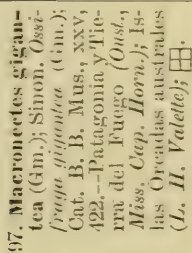 97. Macronectes gigan-
tea (Gm.); Sinon. Ossi-
fraga gigantea (Gm.);
Cat. B. B. Mus., XXV,
422.--Patagonia y Tie-
rra del Fuego (Oust.,
Miss. Cap. Horn.); Is-
las Orcadas australes
(L. H. Valette);